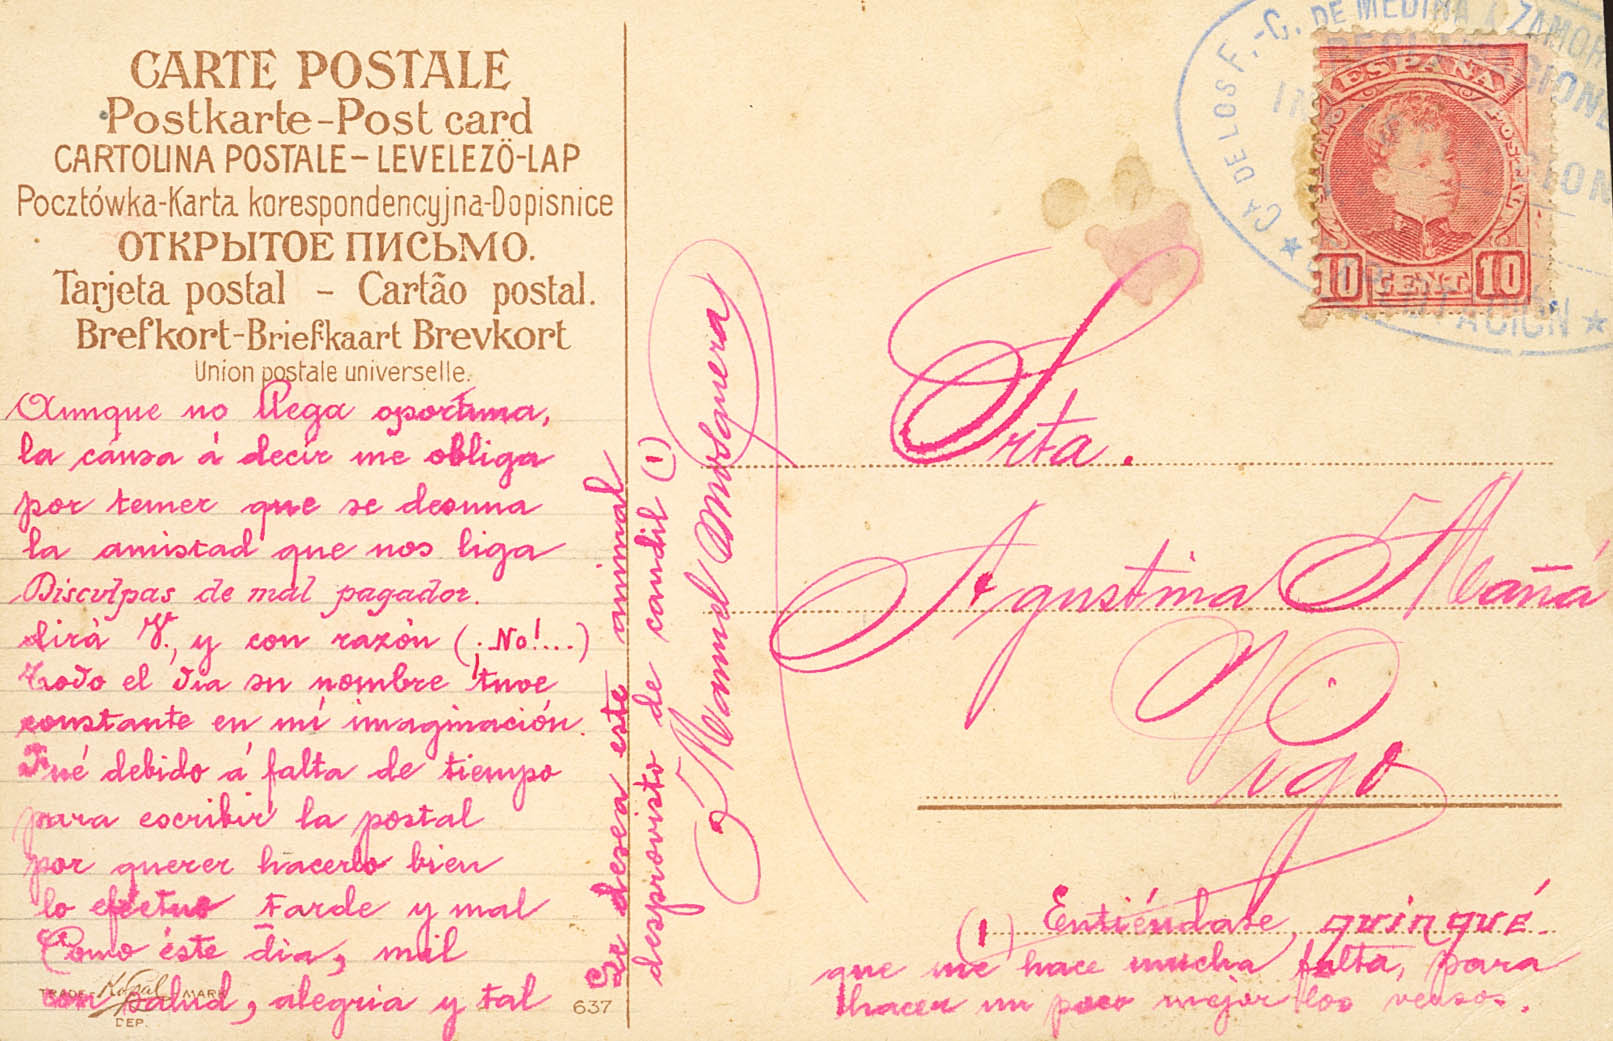 CARTE POSTALE
Postkarte-Post card
CARTOLINA POSTALE-LEVELEZÖ-LAP
Pocztówka-Karta korespondencyjna-Dopisnice
ОТКРЫТОЕ ПИСЬМО.
Tarjeta postal - Cartão postal.
Brefkort-Briefkaart Brevkort
Union postale universelle.
Aunque no llega oportuna,
la causa á decir me obliga
por temer que se desuna
la amistad que nos liga
Disculpas de mal pagador.
dirá V., y con razón (¡No!...)
Todo el día su nombre tuve
constante en mi imaginación.
Fué debido á falta de tiempo
para escribir la postal
por querer hacerlo bien
lo efectuo tarde y mal
Como éste día, mil
con salud, alegria y tal
TRADE- Kopal MARK
DEP.
637
Se desea este animal
desprovisto de candil (1)
Manuel Mosquera
Cª DE LOS F.-C. DE MEDINA A ZAMOR
ESPAÑA
10 CENT 10
Srta.
Agustina Mañá
Vigo
(1) Entiéndase, quinqué.
que me hace mucha falta, para
hacer un poco mejor los versos.